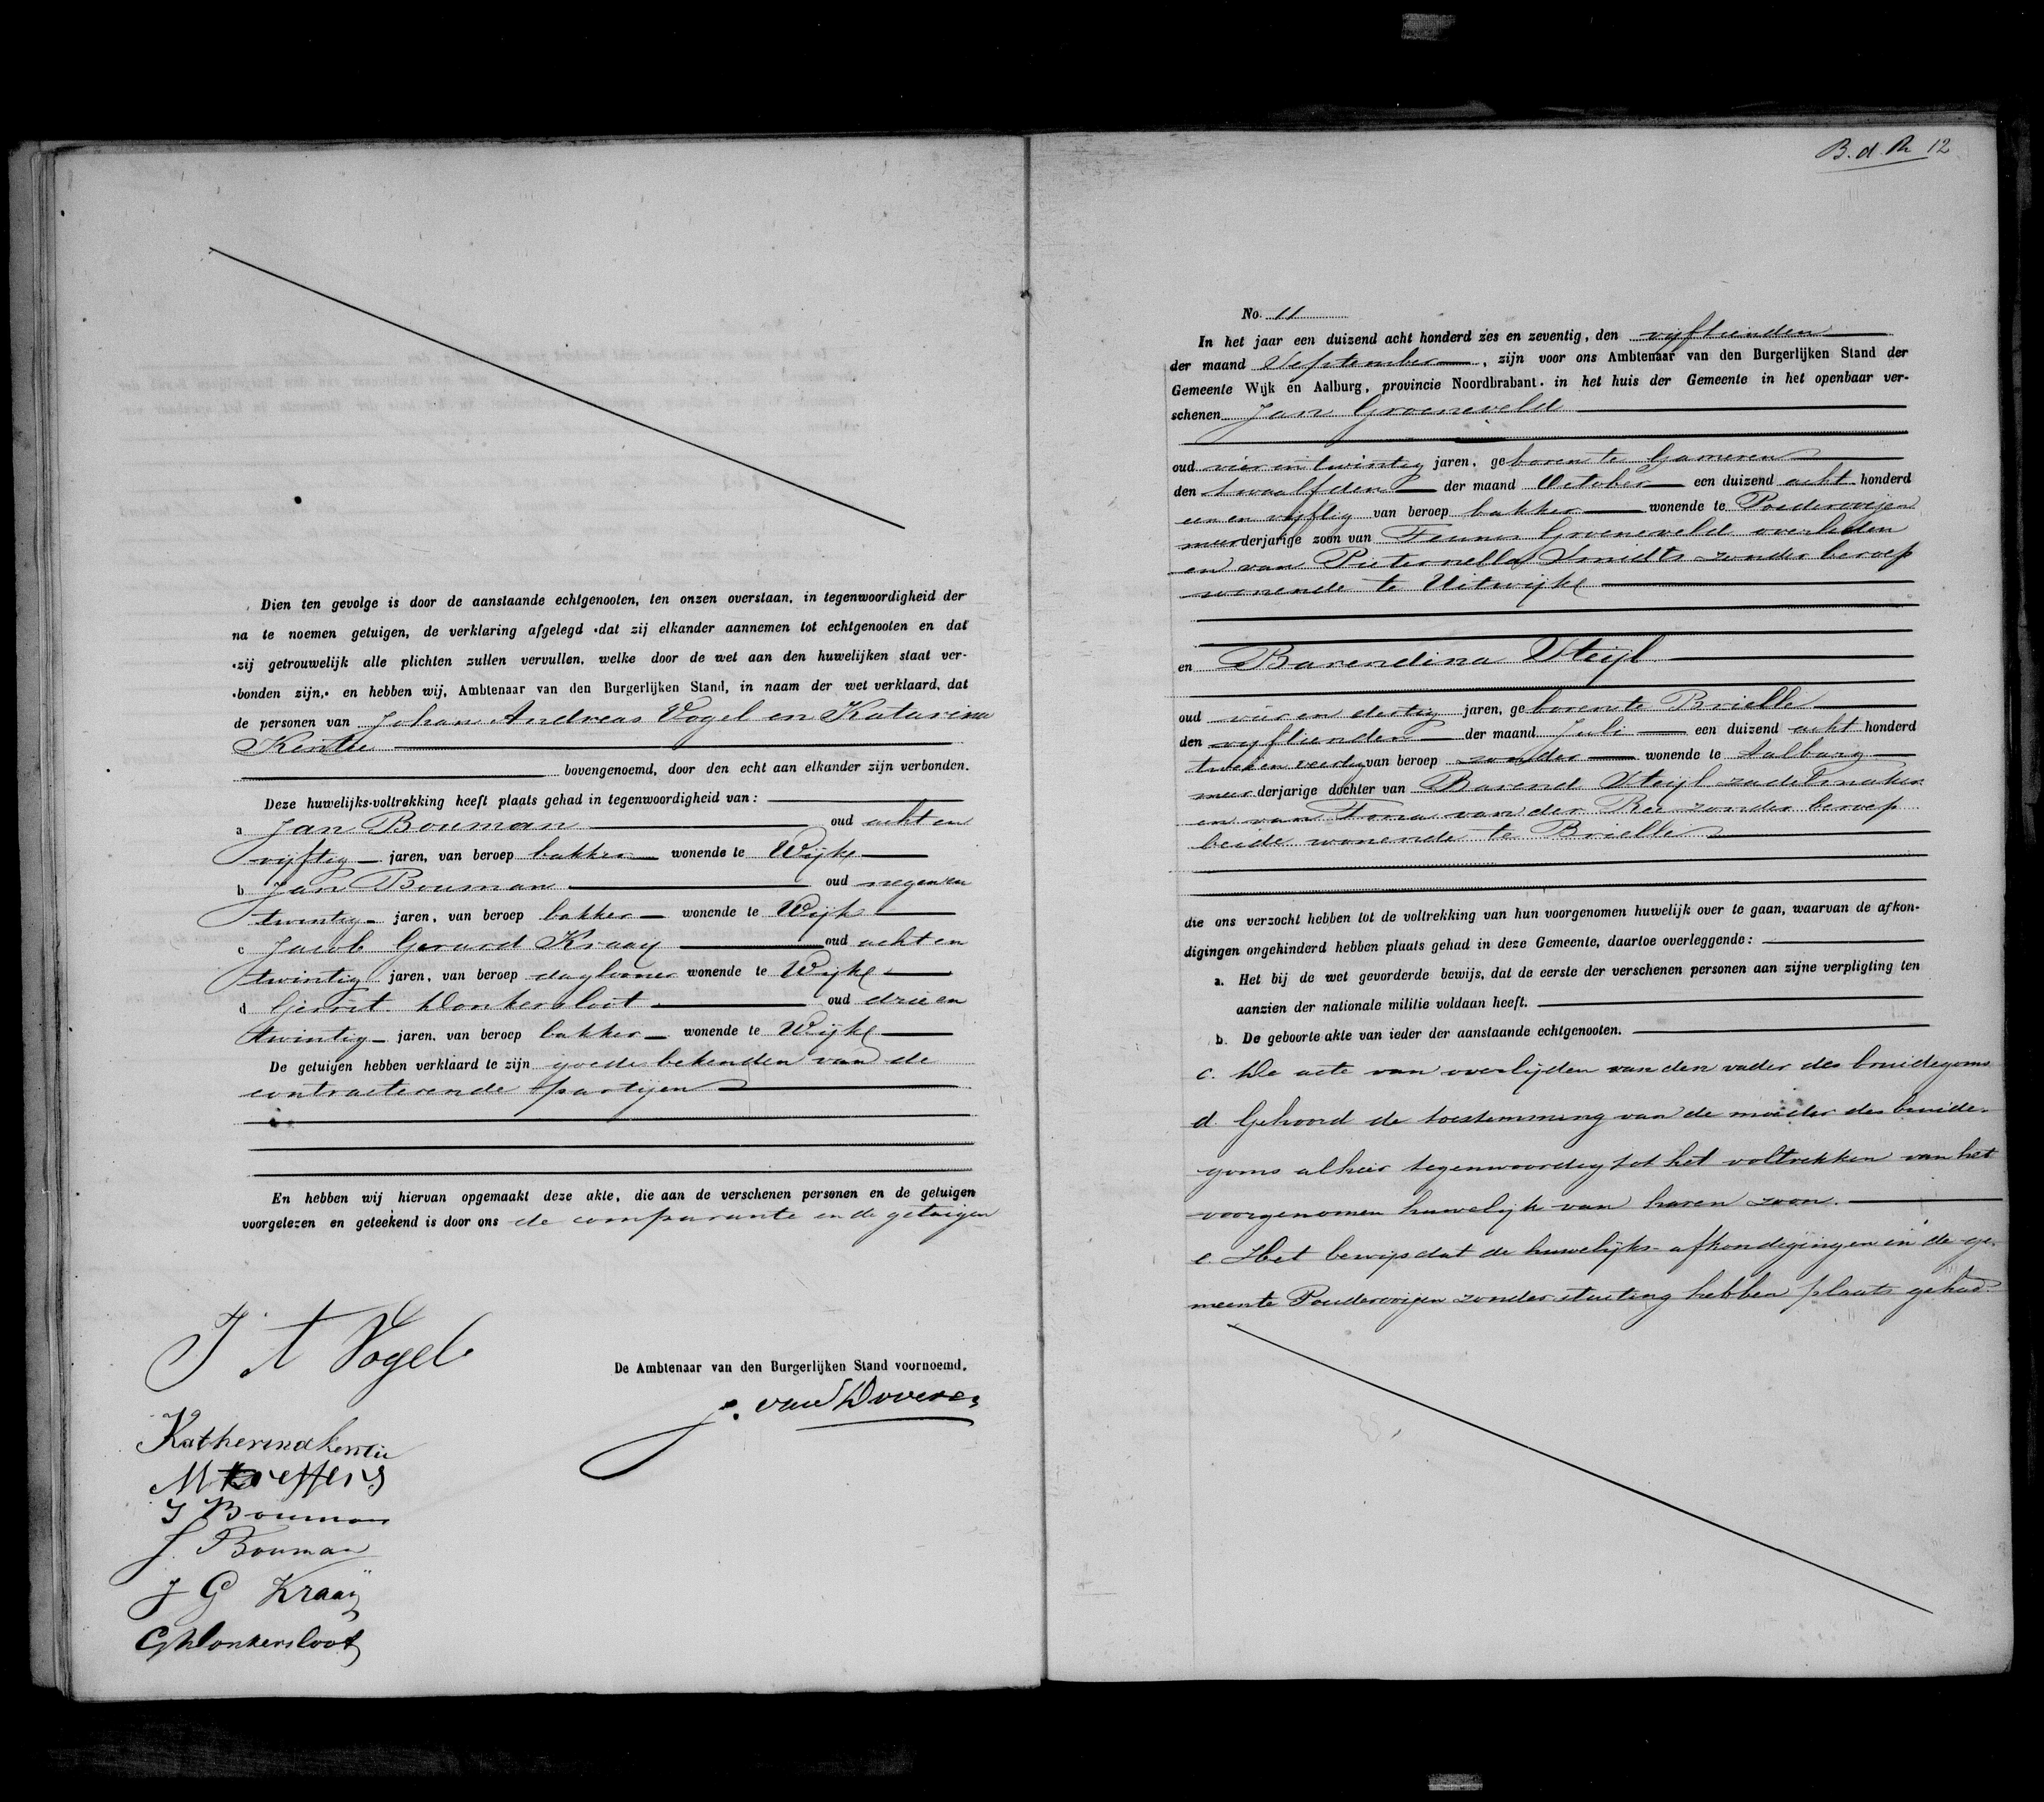 Dien ten gevolge is door de aanstaande echtgenooten, ten onzen overstaan, in tegenwoordigheid der
na te noemen getuigen, de verklaring afgelegd dat zij elkander aannemen tot echtgenooten en dat
zij getrouwelijk alle plichten zullen vervullen, welke door de wet aan den huwelijken staat ver-
bonden zijn, en hebben wij, Ambtenaar van den Burgerlijken Stand, in naam der wet verklaard, dat
de personen van Johan Andreas Vogel en Katarina
Kentie
bovengenoemd, door den echt aan elkander zijn verbonden.
Deze huwelijks-voltrekking heeft plaats gehad in tegenwoordigheid van:
a Jan Bouman oud acht en
vijftig jaren, van beroep bakker wonende te Wijk
b Jan Bouman oud negen en
twintig jaren, van beroep bakker wonende te Wijk
c Jacob Gerard Kraaij oud acht en
twintig jaren, van beroep daglooner wonende te Wijk
d Gerrit Donkersloot oud drie en
twintig jaren, van beroep bakker wonende te Wijk
De getuigen hebben verklaard te zijn goede bekenden van de
contracterende partijen
En hebben wij hiervan opgemaakt deze akte, die aan de verschenen personen en de getuigen
voorgelezen en geteekend is door ons de comparante en de getuigen
J A Vogel
De Ambtenaar van den Burgerlijken Stand voornoemd,
J. van
Katherina
J Bouman
J. Bouman
J G Kraaij
G Donkersloot
B. d. R 12
No. 11
In het jaar een duizend acht honderd zes en zeventig, den vijftienden
der maand September, zijn voor ons Ambtenaar van den Burgerlijken Stand der
Gemeente Wijk en Aalburg, provincie Noordbrabant. in het huis der Gemeente in het openbaar ver-
schenen Jan Groeneveld
oud vier en twintig jaren, geboren te Gameren
den twaalfden der maand October een duizend acht honderd
een en vijftig van beroep bakker wonende te Poederoijen
meerderjarige zoon van Teunis Groeneveld overleden
en van Pieternella Smidts zonder beroep
wonende te Uitwijk
en Barendina Steijl
oud vier en dertig jaren, geboren te Brielle
den vijftienden der maand Juli een duizend acht honderd
twee en veertig van beroep zonder wonende te Aalburg
meerderjarige dochter van Barend Steijl zadelmaker
en van Fona van der Ree zonder beroep
beide wonende te Brielle
die ons verzocht hebben tot de voltrekking van hun voorgenomen huwelijk over te gaan, waarvan de afkon-
digingen ongehinderd hebben plaats gehad in deze Gemeente, daartoe overleggende:
a. Het bij de wet gevorderde bewijs, dat de eerste der verschenen personen aan zijne verpligting ten
aanzien der nationale militie voldaan heeft.
b. De geboorte akte van ieder der aanstaande echtgenooten.
c. De acte van overlijden van den vader des bruidegoms
d. Gehoord de toestemming van de moeder des bruide-
goms alhier tegenwoordig tot het voltrekken van het
voorgenomen huwelijk van haren zoon.
e. Het bewijs dat de huwelijks-afkondigingen in de ge-
meente Poederoijen zonder stuiting hebben plaats gehad.